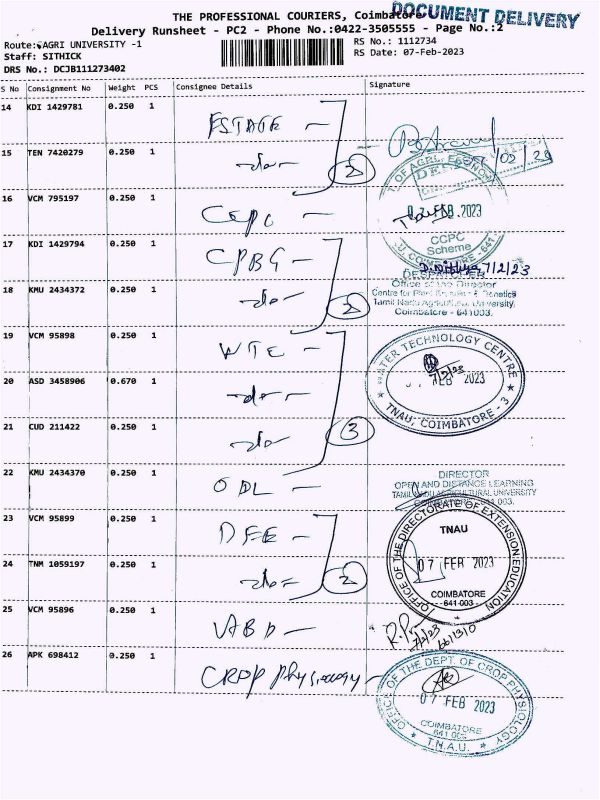 THE PROFESSIONAL COURIERS, Coimbatore
DOCUMENT DELIVERY
Delivery Runsheet - PC2 - Phone No.:0422-3505555 - Page No.:2
Route: AGRI UNIVERSITY -1
RS No.: 1112734
Staff: SITHICK
RS Date: 07-Feb-2023
DRS No.: DCJB111273402
S No Consignment No Weight PCS Consignee Details Signature
14 KDI 1429781 0.250 1
15 TEN 7420279 0.250 1 -do- 2
16 VCM 795197 0.250 1
OF AGRL. ECONOMICS
FEB 2023
CCPC
Scheme
17 KDI 1429794 0.250 1 CPBG -
7/2/23
18 KMU 2434372 0.250 1 -do- 2
Office of the Director
Centre for Plant Breeding & Genetics
Tamil Nadu Agricultural University,
Coimbatore - 641003.
19 VCM 95898 0.250 1 WTC -
WATER TECHNOLOGY CENTRE
7/2/23
FEB 2023
TNAU, COIMBATORE - 3
20 ASD 3458906 0.670 1 -do-
21 CUD 211422 0.250 1 -do- 3
22 KMU 2434370 0.250 1 ODL -
DIRECTOR
OPEN AND DISTANCE LEARNING
TAMIL NADU AGRICULTURAL UNIVERSITY
COIMBATORE - 641 003.
23 VCM 95899 0.250 1 DEE -
OFFICE OF THE DIRECTORATE OF EXTENSION EDUCATION
TNAU
07 FEB 2023
COIMBATORE
- 641 003 -
24 TNM 1059197 0.250 1 -do- 2
25 VCM 95896 0.250 1
7/2/23
26 APK 698412 0.250 1 CROP Physiology -
OFFICE OF THE DEPT. OF CROP PHYSIOLOGY
07 FEB 2023
COIMBATORE
641 003
T.N.A.U.